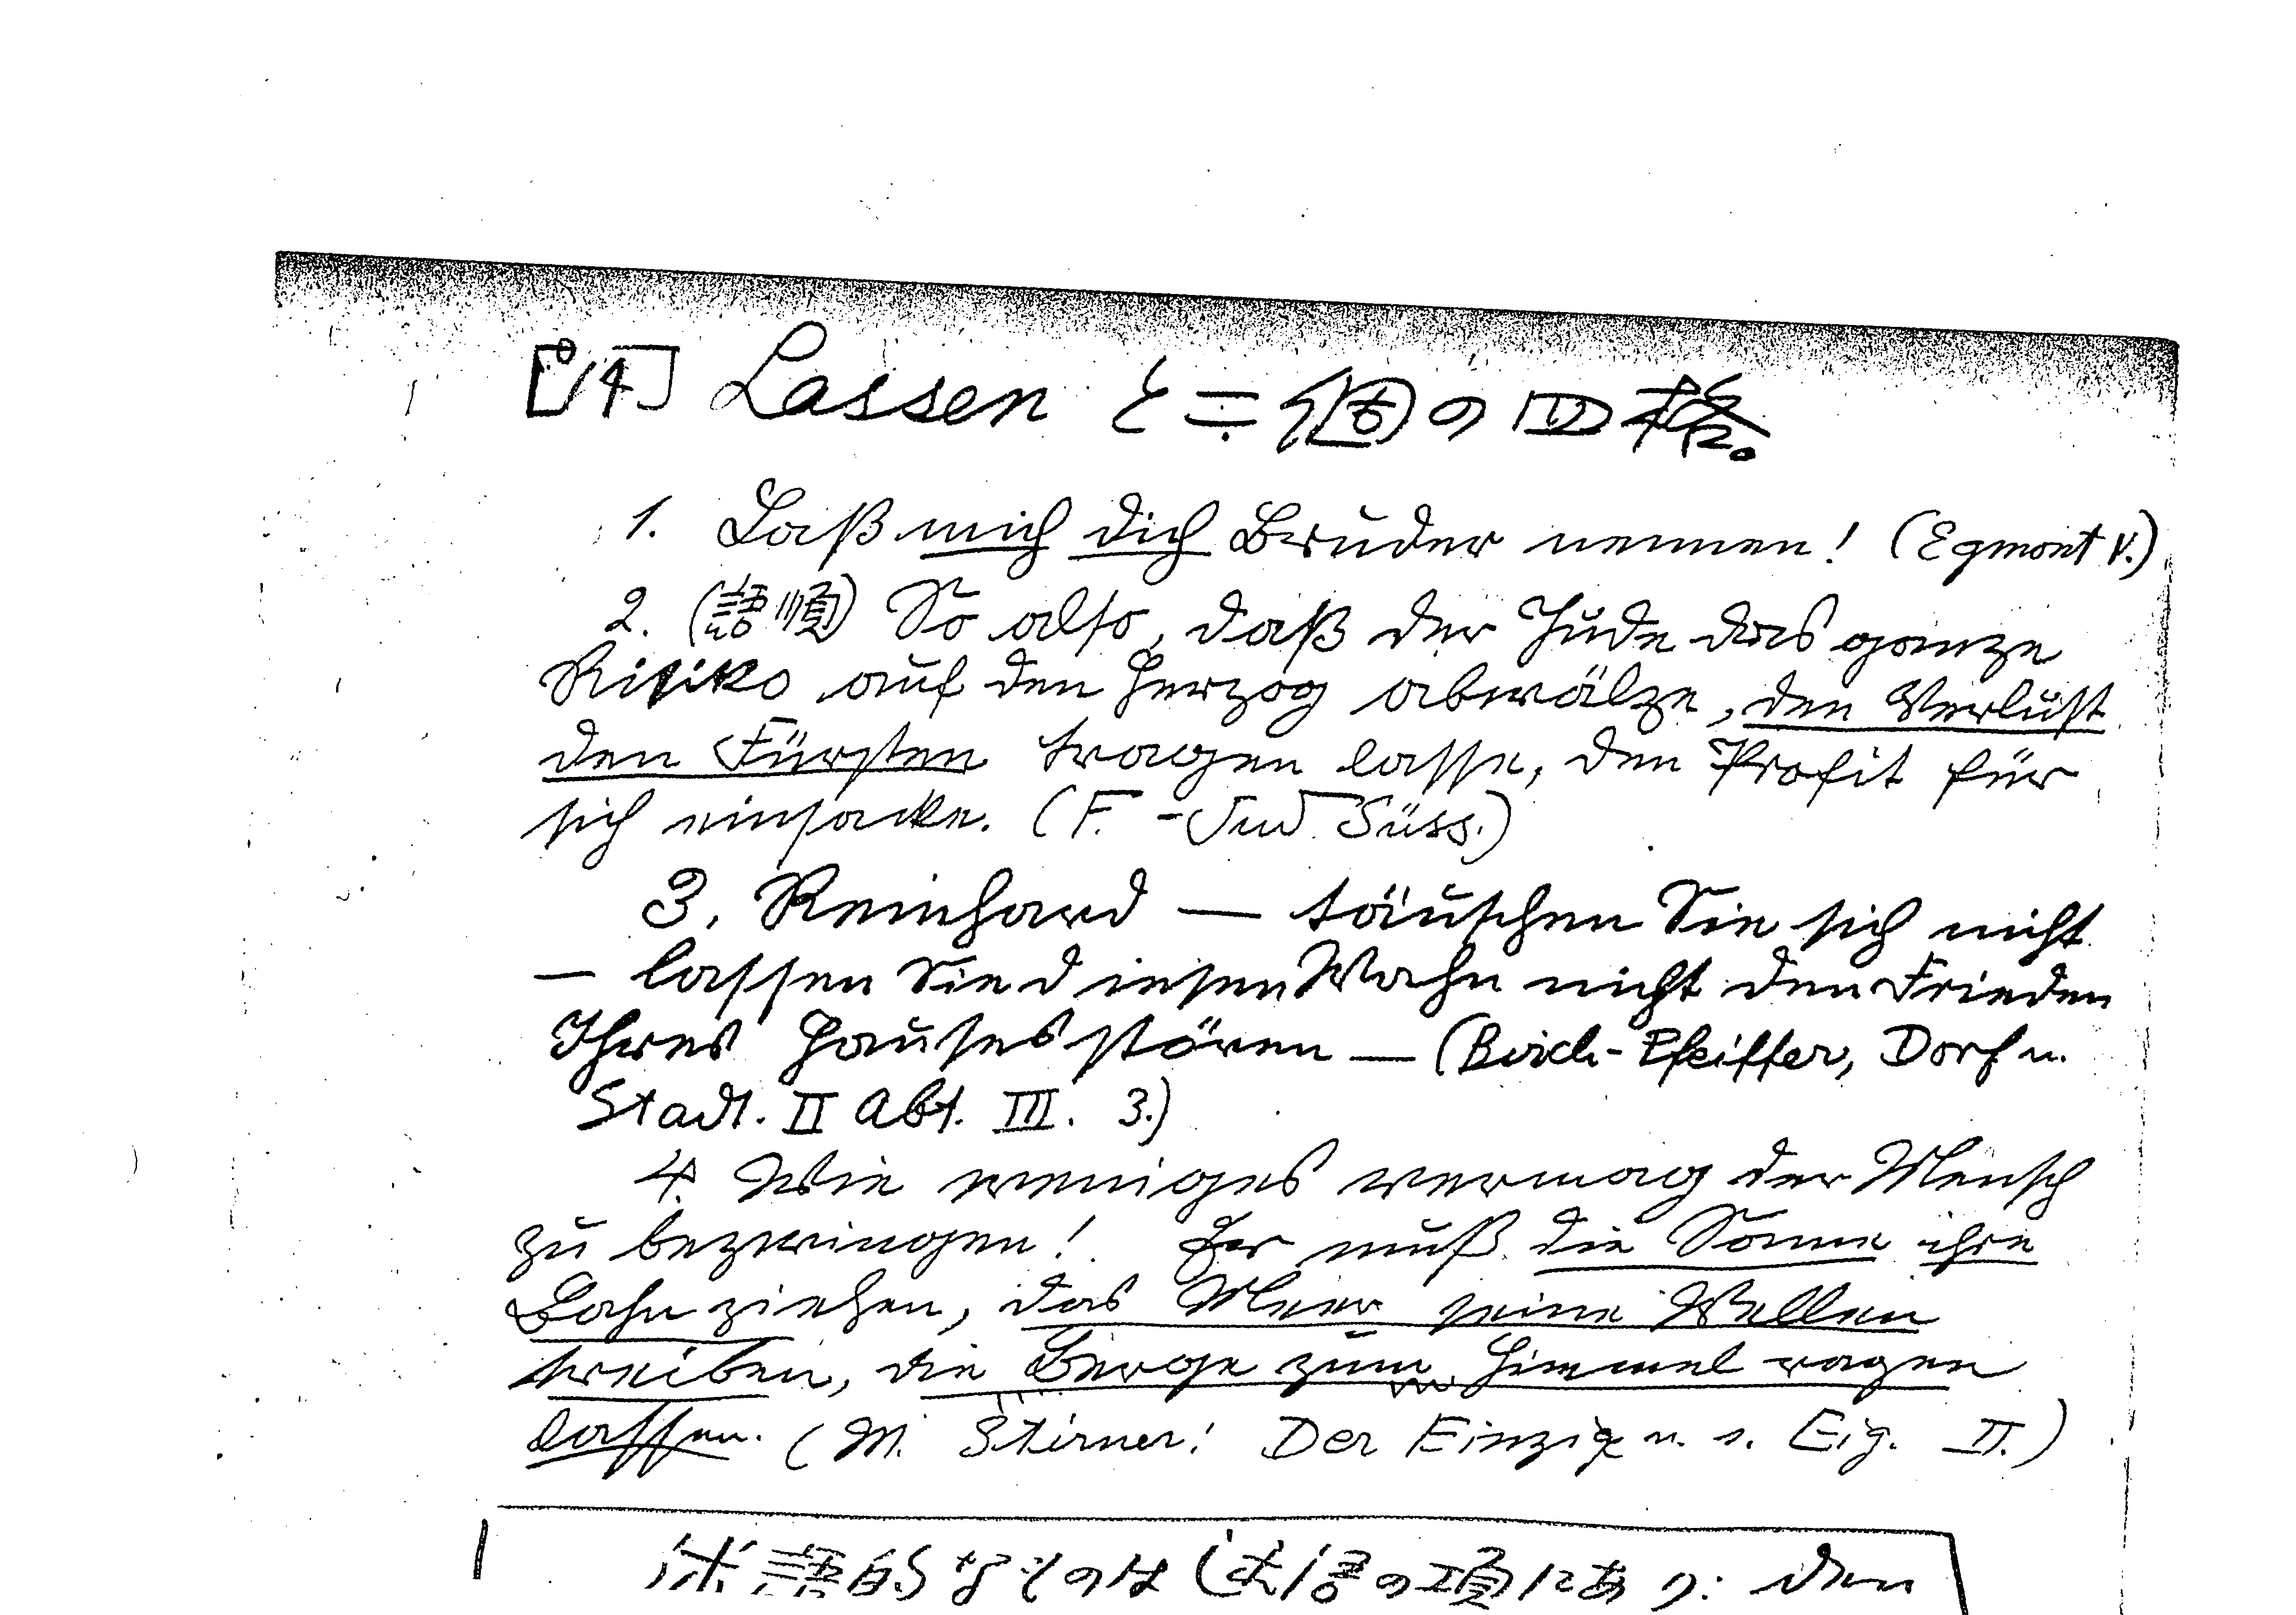 [14] Lassen と二個の四格。
1. Laß mich dich Bruder nennen! (Egmont V.)
2. (語順) So also, daß der Jude das ganze
Risiko auf den Herzog abwälze, den Verlust
den Fürsten tragen lasse, den Profit für
sich einsacke. (F. - Jud Süss.)
3. Reinhard — täuschen Sie sich nicht
— lassen Sie diesen Wahn nicht den Frieden
Ihres Hauses stören — (Birch-Pfeiffer, Dorf u.
Stadt. II Abt. III. 3.)
4. Wie weniges vermag der Mensch
zu bezwingen! Er muß die Sonne ihre
Bahn ziehen, das Meer seine Wellen
treiben, die Berge zum Himmel ragen
lassen. (M. Stirner: Der Einzige u. s. Eig. II.)
的なものは の項にあり: den